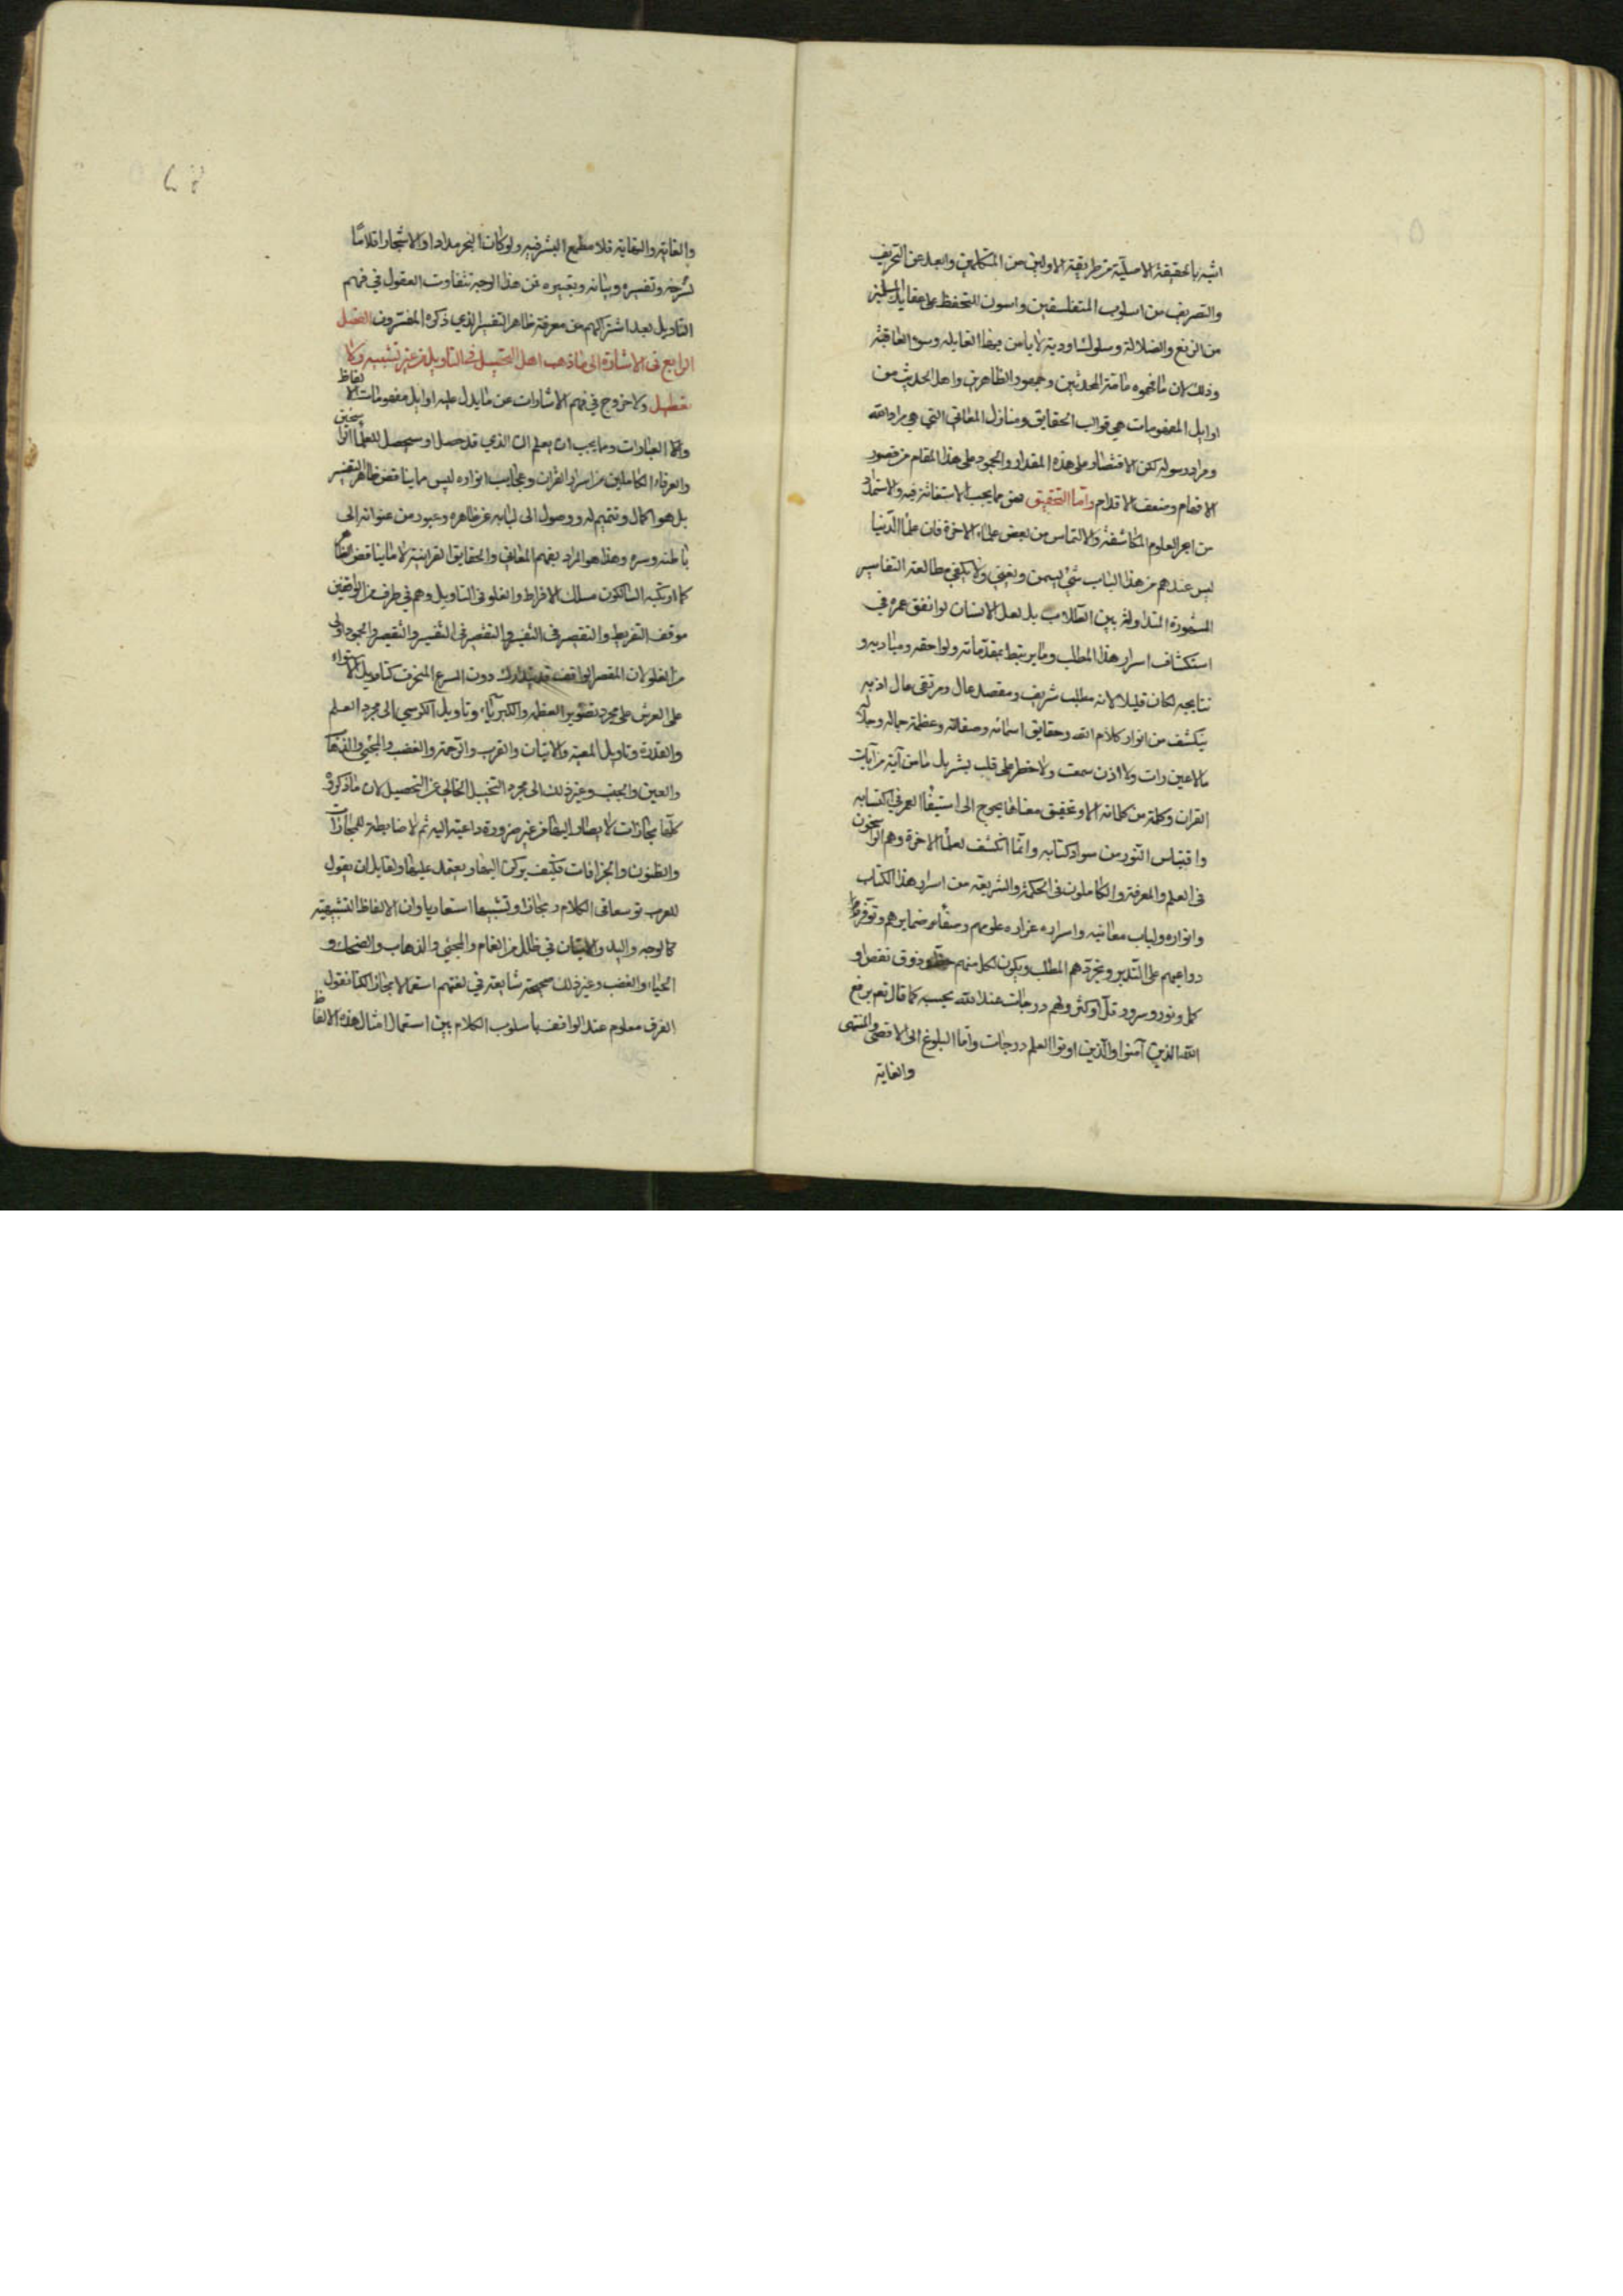 اشبه بالحقيقة الاصلية من طريقة الاولين من المتكلمين وابعد عن التحريف
والتصريف من اسلوب المتفلسفين واصون للتحفظ على عقايد المسلمين
من الزيغ والضلالة وسلوك اودية لا يامن فيها الغايله وسوء العاقبة
وذلك لان ما فهموه عامة المحدثين وجمهور الظاهرين واهل الحديث من
اوايل المفهومات هي قوالب الحقايق ومنازل المعاني التي هي مراد الله
ومراد رسوله لكن الاقتصار على هذه المقدار والجمود على هذا المقام من قصور
الافهام وضعف الاقدام واما التحقيق فهي مما يجب الاستغاثة فيه والاستمداد
من ابحر العلوم المكاشفة والالتماس من بعض علماء الاخرة فان علماء الدنيا
ليس عندهم من هذا الباب شئ يسمن ويغني ولا يكفي مطالعة التفاسير
المشهورة المتداولة بين الطلاب بل لعل الانسان لو انفق عمره في
استكشاف اسرار هذا المطلب وما يرتبط بمقدماته ولواحقه ومباديه و
نتايجه لكان قليلا لانه مطلب شريف ومقصد عال ومرتقى عال اذ به
ينكشف من انوار كلام الله وحقايق اسمائه وصفاته وعظمة جماله وجلاله
ما لا عين رات ولا اذن سمعت ولا خطر على قلب بشر بل ما من آية من آيات
القران وكلمة من كلماته الا وتحقيق معناها يحوج الى استيفاء العمر في اكتسابه
واقتباس النور من سواد كتابه وانما انكشف لعلماء الاخرة وهم الراسخون
في العلم والمعرفة والكاملون في الحكمة والشريعة من اسرار هذا الكتاب
وانواره ولباب معانيه واسراره غزارة علومهم وصفاء ضمايرهم وتوفر
دواعيهم على التدبر وتجردهم المطلب ويكون لكل منهم ذوق نقص او
كمل ونور وسرور قل او كثر ولهم درجات عند الله بحسبه كما قال تعم يرفع
الله الذين آمنوا والذين اوتوا العلم درجات واما البلوغ الى الاقصى والمنتهى
والغاية
والغاية والنهاية فلا مطمع البشر فيه ولو كان البحر مدادا والاشجار اقلاما
لشرحه وتفسيره وبيانه وتعبيره فمن هذا الوجه تتفاوت العقول في فهم
التاويل بعد اشتراكهم من معرفة ظاهر التفسير الذي ذكره المفسرون الفصل
الرابع في الاشارة الى ما ذهب اهل التحصيل في التاويل من غير تشبيه ولا
تعطيل ولا خروج في فهم الاشارات عن ما يدل عليه اوايل مفهومات الالفاظ
والعبارات ومما يجب ان يعلم ان الذي قد حصل او سيحصل للعلماء الراسخين
والعرفاء الكاملين من اسرار القران وعجايب انواره ليس مما يناقض ظاهر التفسير
بل هو اكمال وتتميم له ووصول الى لبابه عن ظاهره وعبور من عنوانه الى
باطنه وسره وهذا هو المراد بفهم المعاني والحقايق القرانية لا ما يناقض الظاهر
كما ارتكبه السالكون مسلك الافراط والغلو في التاويل وهم في طرف من الواقفين
موقف التفريط والتقصير في التفسير والتقصير في التفسير والتقصير والجمود اولى
من الغلو لان المقصر الواقف قد يتدارك دون المسرع المنحرف كتاويل الاستواء
على العرش على مجرد تصوير العظمة والكبرياء وتاويل الكرسي الى مجرد العلم
والقدرة وتاويل المعية والاتيان والقرب والرحمة والغضب والمجيئ والذهاب
والعين والجنب وغير ذلك الى مجرد التخييل الخالي عن التحصيل لان ما ذكروه
كلها مجازات لا يصار اليها من غير ضرورة داعية اليه ثم لا ضابطة للمجازات
والظنون والجزافات فكيف يركن اليها ويعتمد عليها ولقايل ان يقول
للعرب توسعا في الكلام ومجازا وتشبيها استعاريا وان الالفاظ التشبيهية
كالوجه واليد والاتيان في ظلل من الغمام والمجيئ والذهاب والضحك و
الحياء والغضب وغير ذلك صحيحة شايعة في لغتهم استعمالا مجازا لكنا نقول
الفرق معلوم عند الواقف باسلوب الكلام بين استعمال امثال هذه الالفاظ